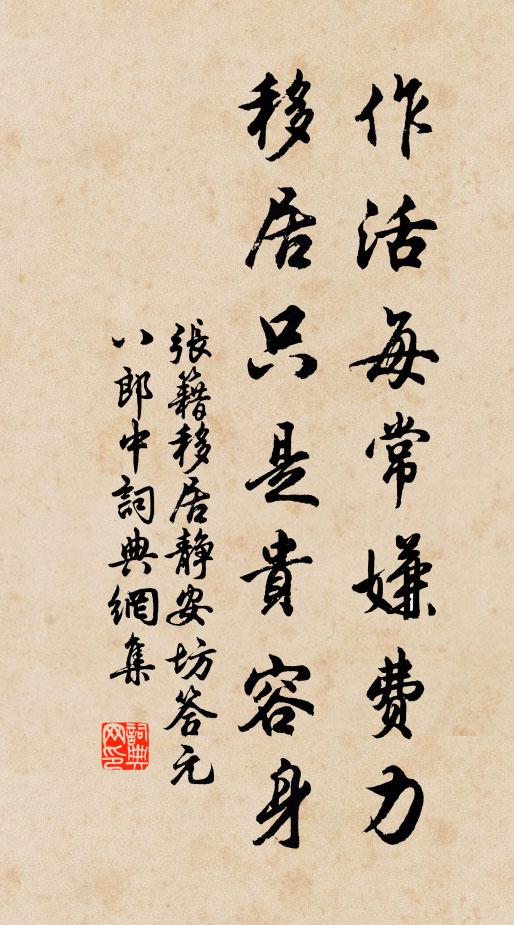 作活每常嫌費力
移居只是貴容身
張籍移居靜安坊答元
八郎中詞典網集
詞典网印